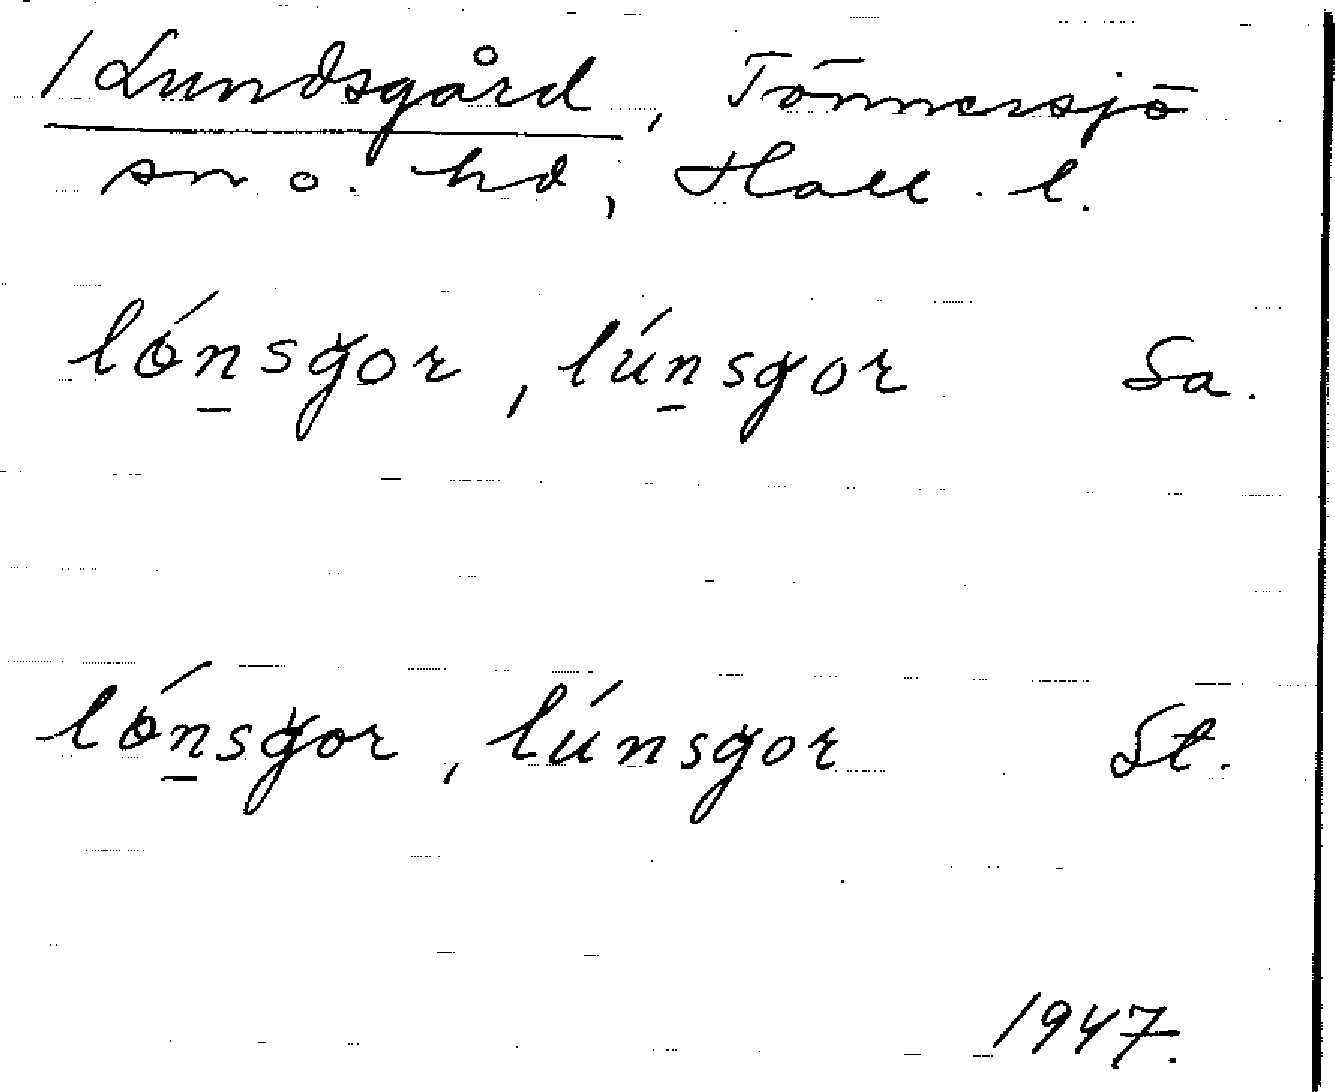 / Lundsgård, Tönnersjö
sn o. hd, Hall. l.
lónsgor, lúnsgor Sa.
lónsgor, lúnsgor St.
1947.